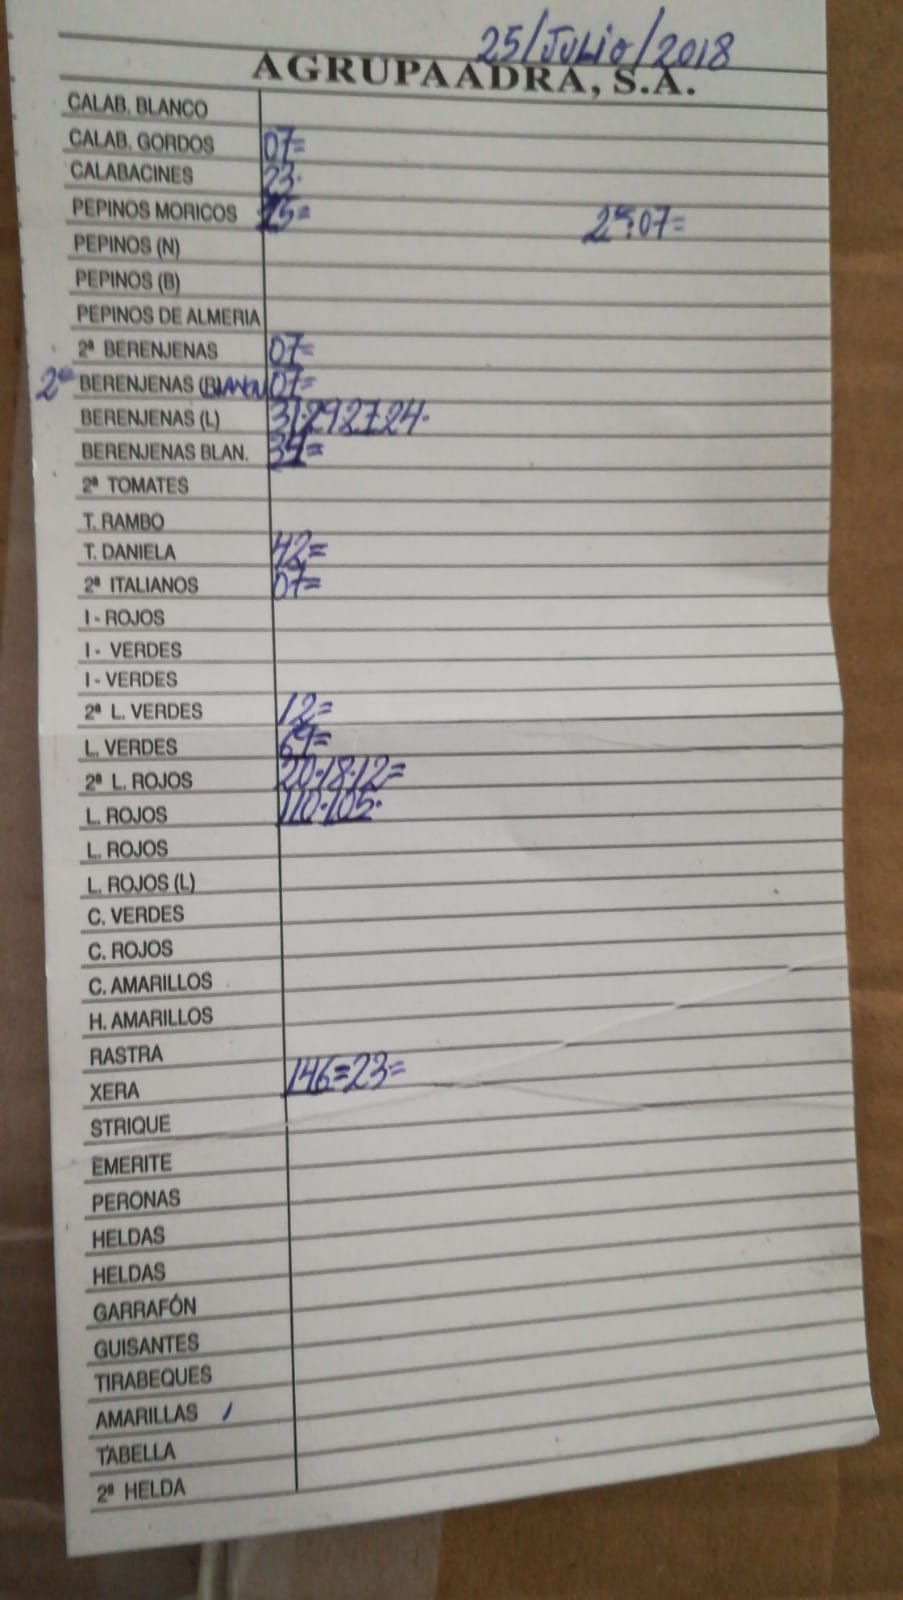 25/JULIO/2018
AGRUPAADRA, S.A.
CALAB. BLANCO
CALAB. GORDOS 07=
CALABACINES 23.
PEPINOS MORICOS 15= 2ª:07=
PEPINOS (N)
PEPINOS (B)
PEPINOS DE ALMERIA
2ª BERENJENAS 07=
2ª BERENJENAS (BLANCA) 07=
BERENJENAS (L) 31·29·27·24·
BERENJENAS BLAN. 34=
2ª TOMATES
T. RAMBO
T. DANIELA 42=
2ª ITALIANOS 07=
I - ROJOS
I - VERDES
I - VERDES
2ª L. VERDES 12=
L. VERDES 69=
2ª L. ROJOS 20·18·12=
L. ROJOS 110·105·
L. ROJOS
L. ROJOS (L)
C. VERDES
C. ROJOS
C. AMARILLOS
H. AMARILLOS
RASTRA
XERA 146=23=
STRIQUE
EMERITE
PERONAS
HELDAS
HELDAS
GARRAFÓN
GUISANTES
TIRABEQUES
AMARILLAS
TABELLA
2ª HELDA